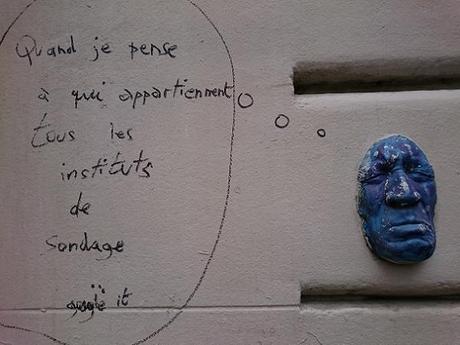 Quand je pense
à qui appartiennent
tous les
instituts
de
sondage
google it